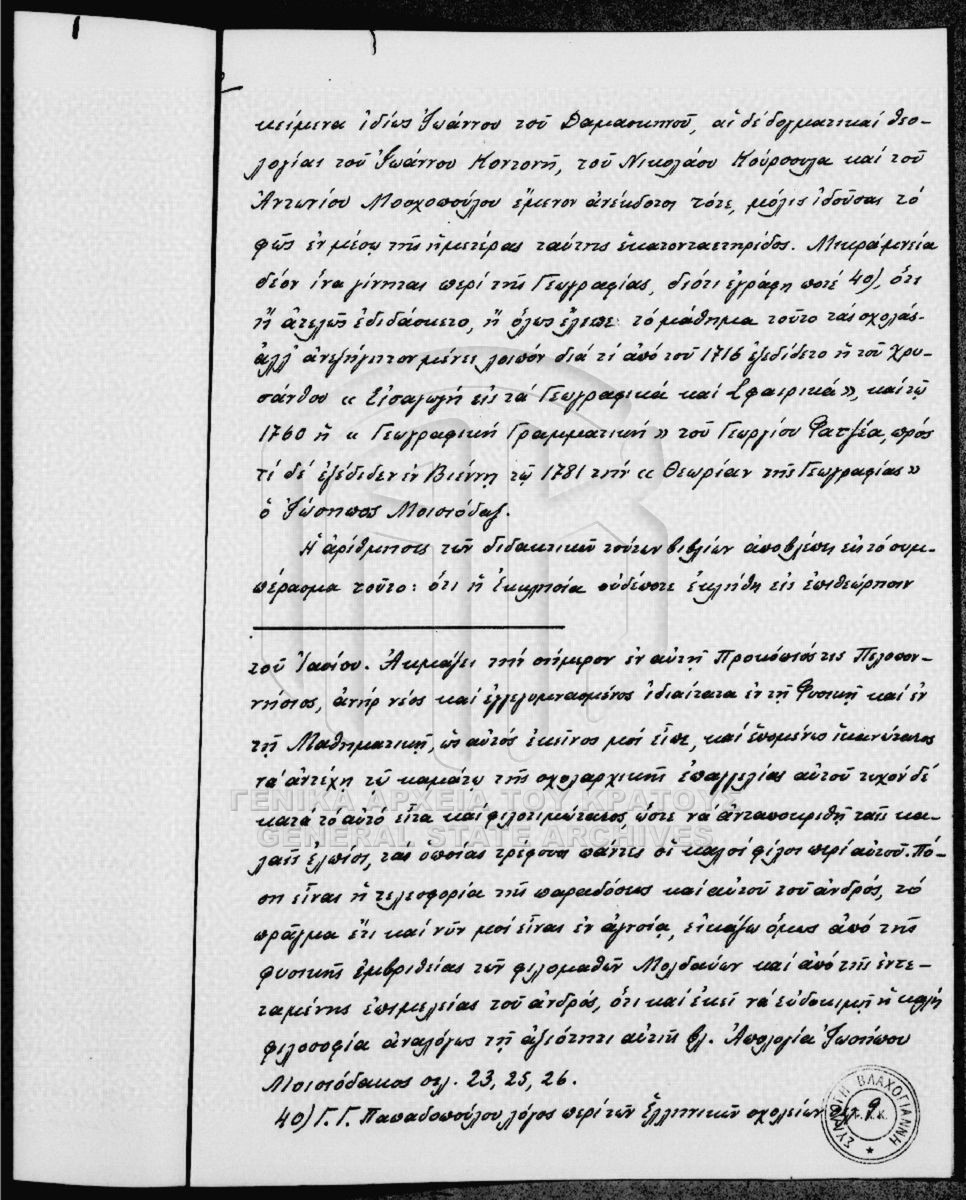 κείμενα ἰδίως Ἰωάννου τοῦ Δαμασκηνοῦ, αἱ δέ δογματικαί θεο-
λογίαι τοῦ Ἰωάννου Κοντονῆ, τοῦ Νικολάου Κούρσουλα καί τοῦ
Ἀντωνίου Μοσχοπούλου ἔμενον ἀνέκδοτοι τότε, μόλις ἰδοῦσαι τό
φῶς ἐν μέσῳ τῆς ἡμετέρας ταύτης ἑκατονταετηρίδος. Μικρά μνεία
δέον ἵνα γίνηται περί τῆς Γεωγραφίας, διότι ἐγράφη ποτέ 40), ὅτι
ἤ ἀτελῶς ἐδιδάσκετο, ἤ ὅλως ἔλειπε τό μάθημα τοῦτο ταῖς σχολαῖς·
ἀλλ' ἀνεξήγητον μένει λοιπόν διά τί ἀπό τοῦ 1716 ἐξεδίδετο ἡ τοῦ Χρυ-
σάνθου « Εἰσαγωγή εἰς τά Γεωγραφικά καί Σφαιρικά », καί τῷ
1760 ἡ « Γεωγραφική Γραμματική » τοῦ Γεωργίου Φατζέα, πρός
τί δέ ἐξέδιδεν ἐν Βιέννῃ τῷ 1781 τήν « Θεωρίαν τῆς Γεωγραφίας »
ὁ Ἰώσηπος Μοισιόδαξ.
Ἡ ἀρίθμησις τῶν διδακτικῶν τούτων βιβλίων ἀποβλέπει εἰς τό συμ-
πέρασμα τοῦτο: ὅτι ἡ Ἐκκλησία οὐδέποτε ἐκλήθη εἰς ἐπιθεώρησιν
τοῦ Ἰασίου. Ἀκμάζει τήν σήμερον ἐν αὐτῇ Προκόπιός τις Πελοπον-
νήσιος, ἀνήρ νέος καί ἐγγεγυμνασμένος ἰδιαίτατα ἐν τῇ Φυσικῇ καί ἐν
τῇ Μαθηματικῇ, ὡς αὐτός ἐκεῖνος μοί εἶπε, καί ἑπομένως ἱκανώτατος
νά ἀντέχῃ τῷ καμάτῳ τῆς σχολαρχικῆς ἐπαγγελίας αὐτοῦ τυχόν δέ
κατά τό αὐτό εἶτα καί φιλοτιμώτατος, ὥστε νά ἀνταποκριθῇ ταῖς κα-
λαῖς ἐλπίσι, τάς ὁποίας τρέφουσι πάντες οἱ καλοί φίλοι περί αὐτοῦ. Πό-
ση εἶναι ἡ τελεσφορία τῆς παραδόσεως καί αὐτοῦ τοῦ ἀνδρός, τό
πρᾶγμα ἔτι καί νῦν μοί εἶναι ἐν ἀγνοίᾳ, εἰκάζω ὅμως ἀπό τῆς
φυσικῆς ἐμβριθείας τῶν φιλομαθῶν Μολδαύων καί ἀπό τῆς ἐντε-
ταμένης ἐπιμελείας τοῦ ἀνδρός, ὅτι καί ἐκεῖ νά εὐδοκιμῇ ἡ καλή
φιλοσοφία ἀναλόγως τῇ ἀξιότητι αὐτῆς βλ. Ἀπολογία Ἰωσήπου
Μοισιόδακος σελ. 23, 25, 26.
40) Γ. Γ. Παπαδοπούλου λόγος περί τῶν ἑλληνικῶν σχολείων σελ. 9
ΓΕΝΙΚΑ ΑΡΧΕΙΑ ΤΟΥ ΚΡΑΤΟΥΣ
GENERAL STATE ARCHIVES
ΣΥΛΛΟΓΗ ΒΛΑΧΟΓΙΑΝΝΗ